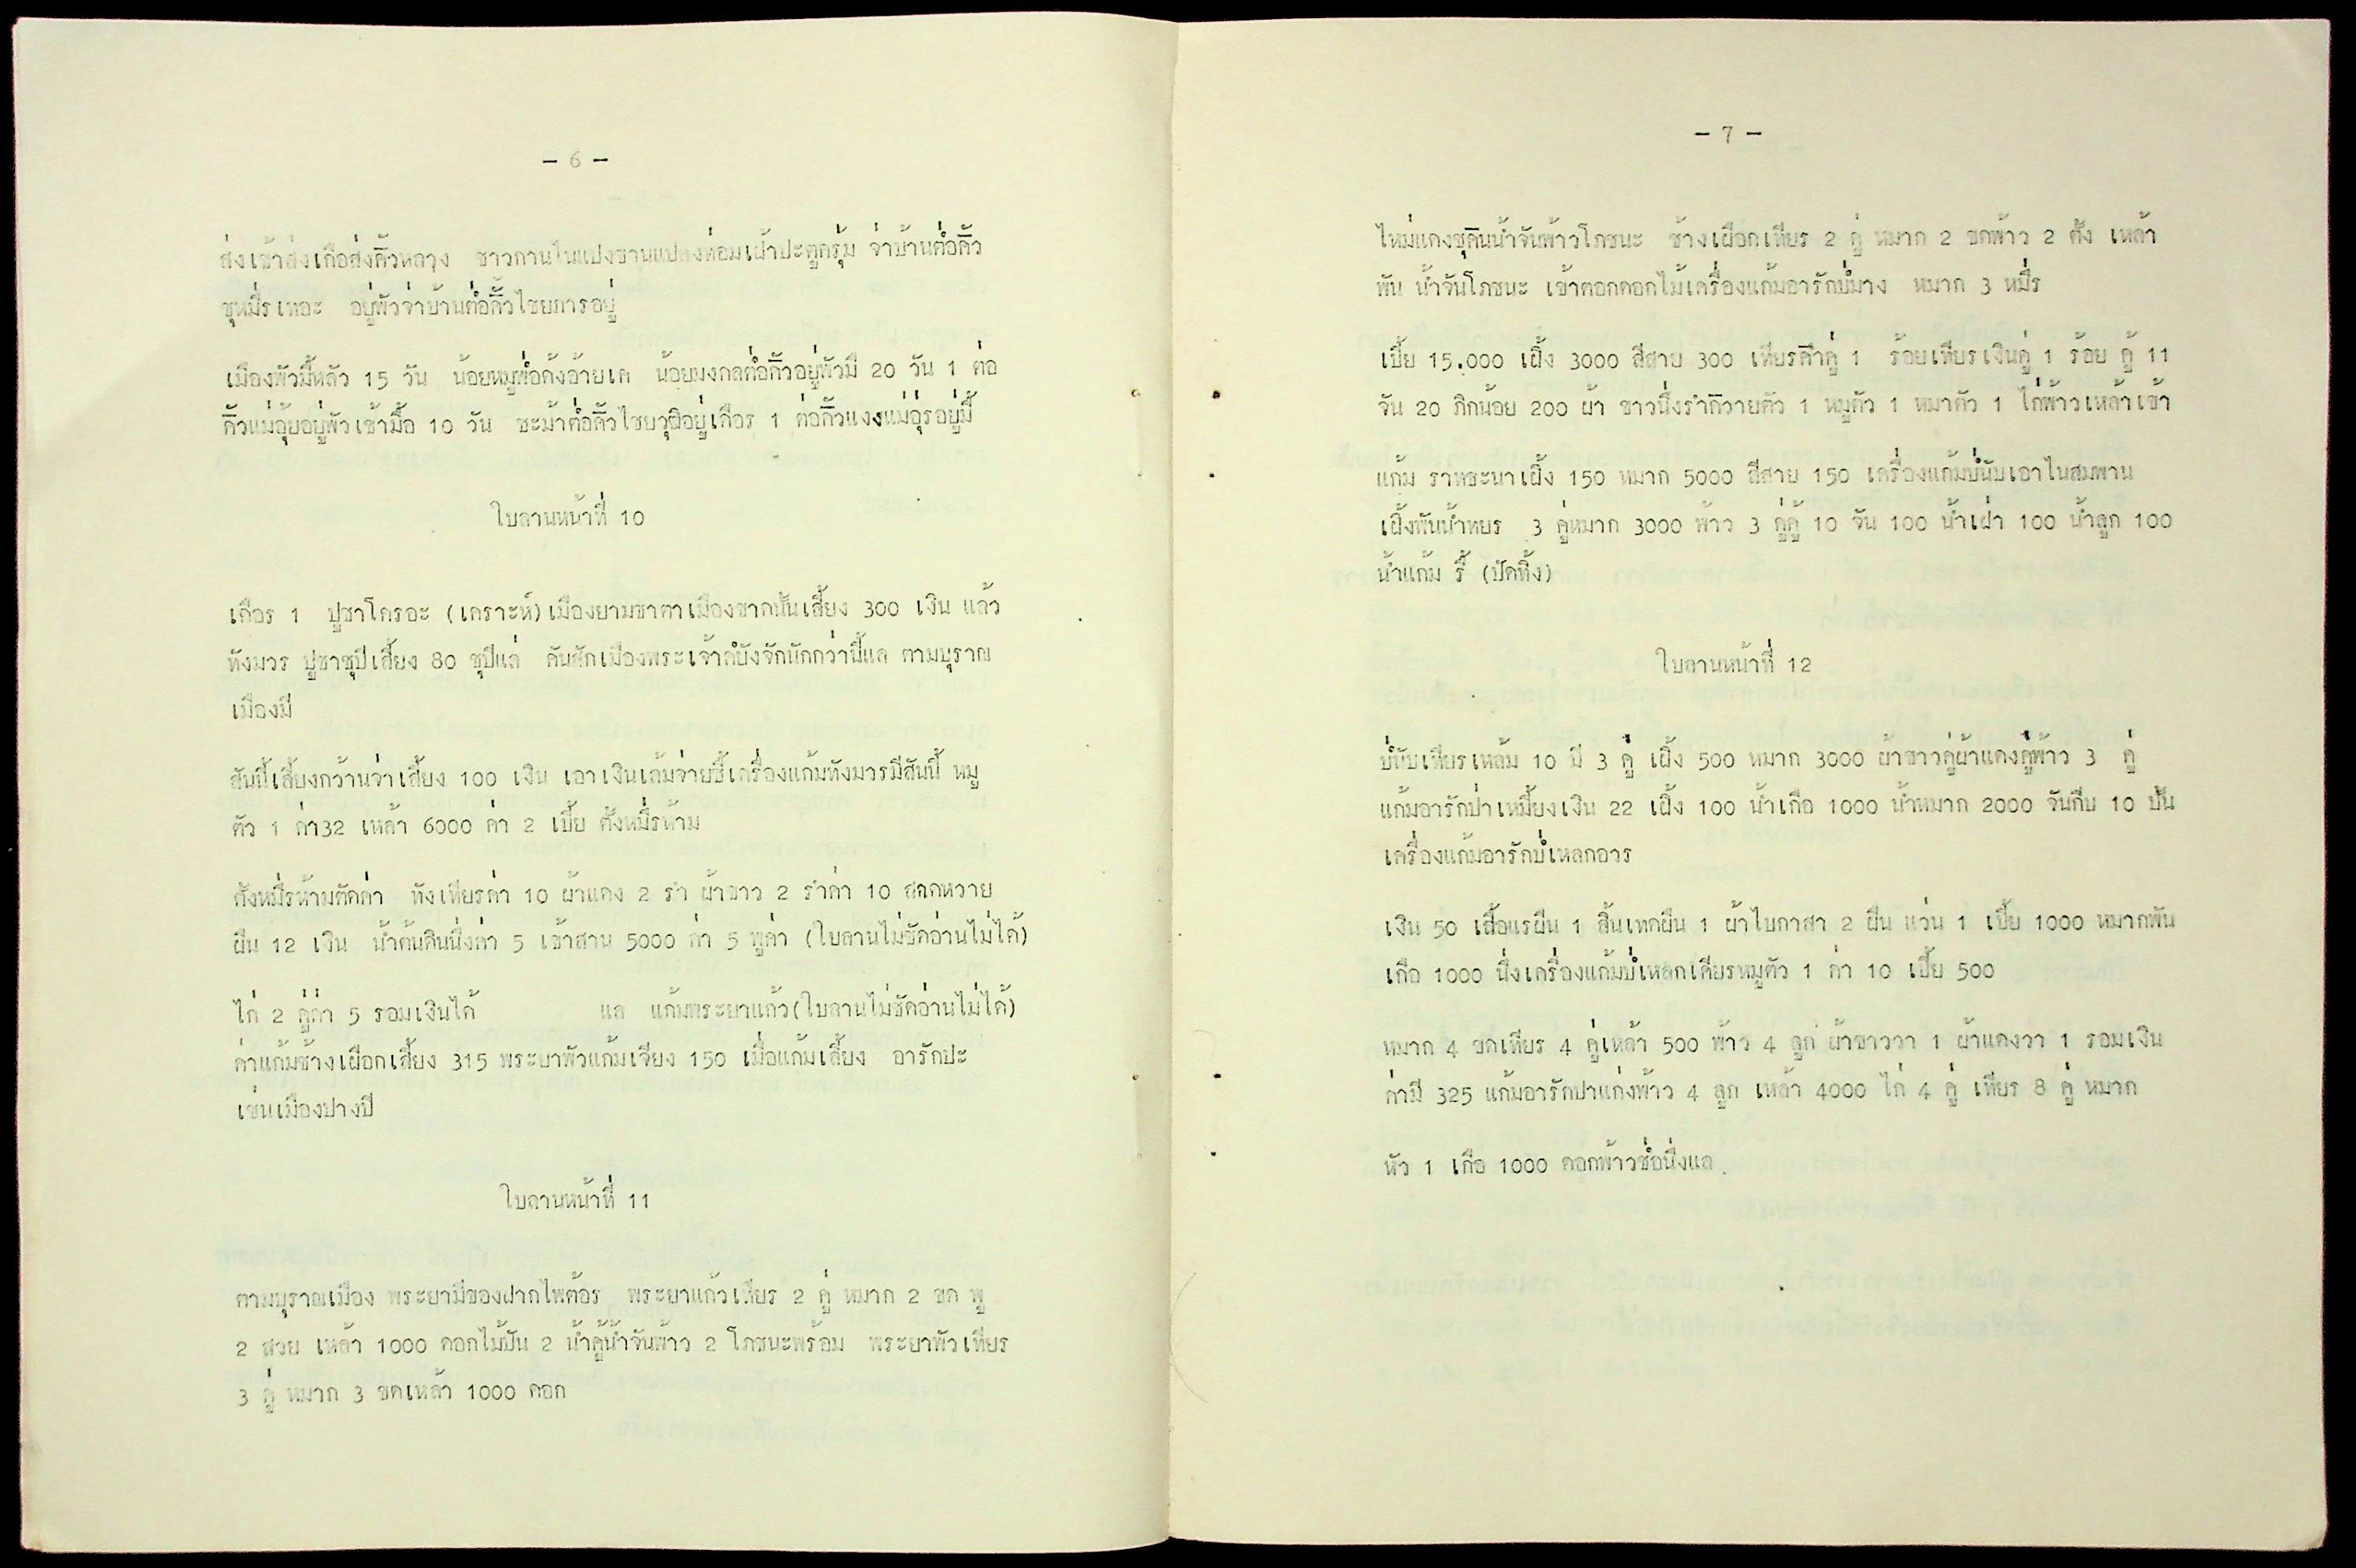 - 6 -
ส่งเข้าส่งเกือส่งคิ้วหลวง ชาวกานในแปงขานแปลงท่อมเฝ้าปะตูครุ้ม จ่าบ้านต่อคิ้ว
ชุหมื่รเหอะ อยู่พัวจ่าบ้านต่อคิ้วไชยการอยู่
เมืองพัวมี้หลัว 15 วัน น้อยหมูพ่อค้งอ้ายเค น้อยมงกลต่อคิ้วอยู่พัวมี 20 วัน 1 ต่อ
คิ้วแม่อุ้ยอยู่พัวเข้ามื้อ 10 วัน ชะม้าต่อคิ้วไชยวุฒิอยู่เคือร 1 ต่อคิ้วแงงแม่อุ่รอยู่มี้
ใบลานหน้าที่ 10
เคือร 1 ปูชาโกรอะ (เคราะห์) เมืองยามชาตาเมืองขาดนั้นเสี้ยง 300 เงิน แล้ว
ทังมวร ปูชาชุปีเสี้ยง 80 ชุปีแล่ คันสักเมืองพระเจ้าก่บังจักนักกว่านี้แล ตามบุราณ
เมืองมี
สันนี้เสี้ยงกว้านจ่าเสี้ยง 100 เงิน เอาเงินเล้มจ่ายซื้เครื่องแก้มทังมวรมีสันนี้ หมู
ตัว 1 ค่า32 เหล้า 6000 ค่า 2 เบี้ย ตั้งหมื่รห้าม
ตั้งหมื่รห้ามตัดค่า ทังเทียรค่า 10 ผ้าแดง 2 รำ ผ้าขาว 2 รำค่า 10 สาดหวาย
ผืน 12 เงิน น้ำต้นดินนึ่งค่า 5 เข้าสาน 5000 ค่า 5 พูค่า (ใบลานไม่ชัดอ่านไม่ได้)
ไก่ 2 คู่ค่า 5 รอมเงินได้ แล แก้มพระยาแก้ว(ใบลานไม่ชัดอ่านไม่ได้)
ค่าแก้มช้างเผือกเสี้ยง 315 พระยาพัวแก้มเจียง 150 เมื่อแก้มเลี้ยง อารักปะ
เช่นเมืองปางปี
ใบลานหน้าที่ 11
ตามบุราณเมือง พระยามีของฝากไพต้อร พระยาแก้วเทียร 2 คู่ หมาก 2 ขด พู
2 สวย เหล้า 1000 ดอกไม้ปั้น 2 น้ำคู้น้ำจันพ้าว 2 โภชนะพร้อม พระยาพัวเทียร
3 คู่ หมาก 3 ขดเหล้า 1000 ดอก
- 7 -
ไหม่แกงชุดินน้ำจันพ้าวโภชนะ ช้างเผือกเทียร 2 คู่ หมาก 2 ขดพ้าว 2 ตั้ง เหล้า
พัน น้ำจันโภชนะ เข้าตอกดอกไม้เครื่องแก้มอารักบ่มาง หมาก 3 หมื่ร
เบี้ย 15.000 เผิ้ง 3000 สีสาย 300 เทียรคำคู่ 1 ร้อยเทียรเงินคู่ 1 ร้อย คู้ 11
จัน 20 ภิกน้อย 200 ผ้า ขาวนึ่งรำกิวายตัว 1 หมูตัว 1 หมาตัว 1 ไก่พ้าวเหล้าเข้า
แก้ม ราทธะนาเผิ้ง 150 หมาก 5000 สีสาย 150 เครื่องแก้มบ่นับเอาในสมพาน
เผิ้งพันน้ำหยร 3 คู่หมาก 3000 พ้าว 3 คู่คู้ 10 จัน 100 น้ำเฝ่า 100 น้ำลูก 100
น้ำแก้ม รี้ (ปัดทิ้ง)
ใบลานหน้าที่ 12
บ่นับเทียรเหล้ม 10 มี 3 คู่ เผิ้ง 500 หมาก 3000 ผ้าขาวคู่ผ้าแดงคู่พ้าว 3 คู่
แก้มอารักป่าเหมี้ยงเงิน 22 เผิ้ง 100 น้ำเกือ 1000 น้ำหมาก 2000 จันกีบ 10 ปั้น
เครื่องแก้มอารักบ่เหลกอาร
เงิน 50 เสื้อแรผืน 1 สิ้นเทคผืน 1 ผ้าไบกาสา 2 ผืน แว่น 1 เบี้ย 1000 หมากพัน
เกือ 1000 นึ่งเครื่องแก้มบ่เหลกเคียรหมูตัว 1 ค่า 10 เบี้ย 500
หมาก 4 ขดเทียร 4 คู่เหล้า 500 พ้าว 4 ลูก ผ้าขาววา 1 ผ้าแดงวา 1 รอมเงิน
ค่ามี 325 แก้มอารักปาแก่งพ้าว 4 ลูก เหล้า 4000 ไก่ 4 คู่ เทียร 8 คู่ หมาก
หัว 1 เกือ 1000 ดอกพ้าวช่อนึ่งแล